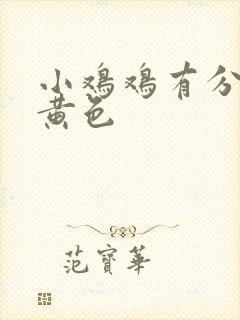 小鸡鸡有分
黄色
范寶華